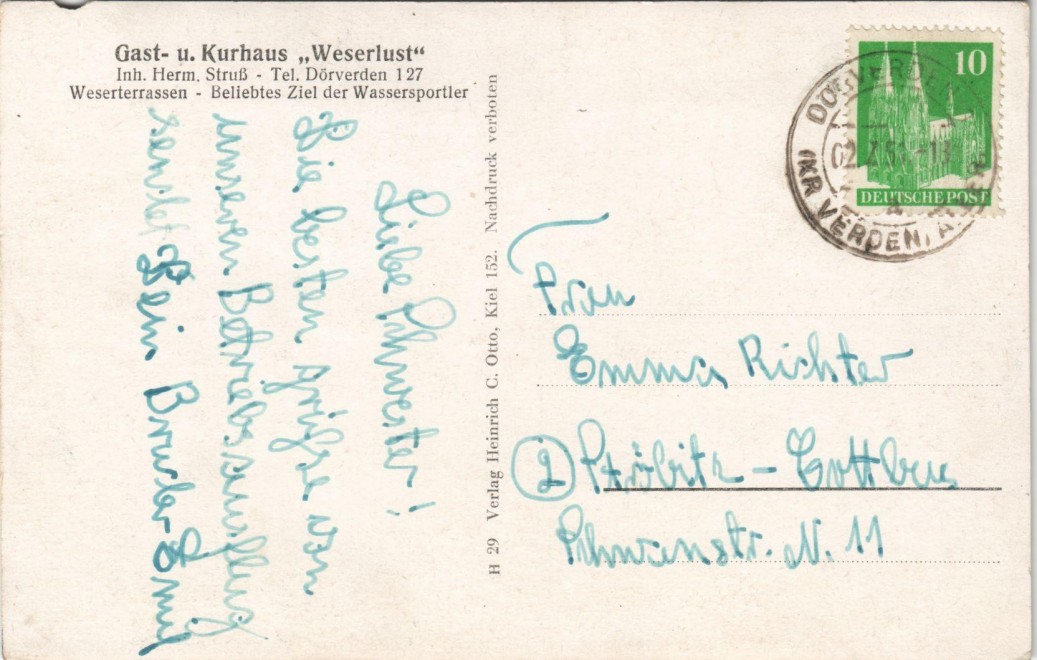 Gast- u. Kurhaus „Weserlust“
Inh. Herm. Struß - Tel. Dörverden 127
Weserterrassen - Beliebtes Ziel der Wassersportler
Liebe Schwester!
Die besten Grüße von
unseren Betriebsausflug
sendet Dein Bruder Emil
H 29 Verlag Heinrich C. Otto, Kiel 152. Nachdruck verboten
10
DEUTSCHE POST
DÖRVERDEN
(KR VERDEN, A.
Frau
Emma Richter
2 Ströbitz - Cottbus
N. 11